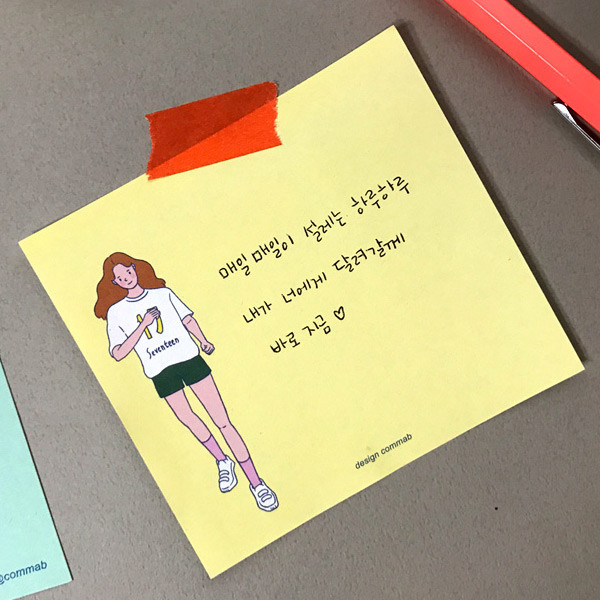 매일매일이 설레는 하루하루
내가 너에게 달려갈께
바로 지금 ♡
17
Seventeen
design commab
@commab